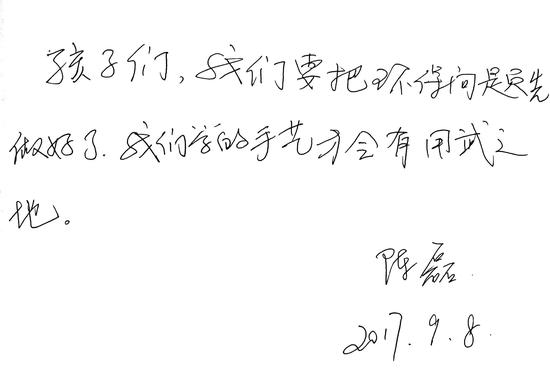 孩子们,我们要把环保问题先
做好了.我们学的手艺才会有用武之
地。
陈磊.
2017.9.8.